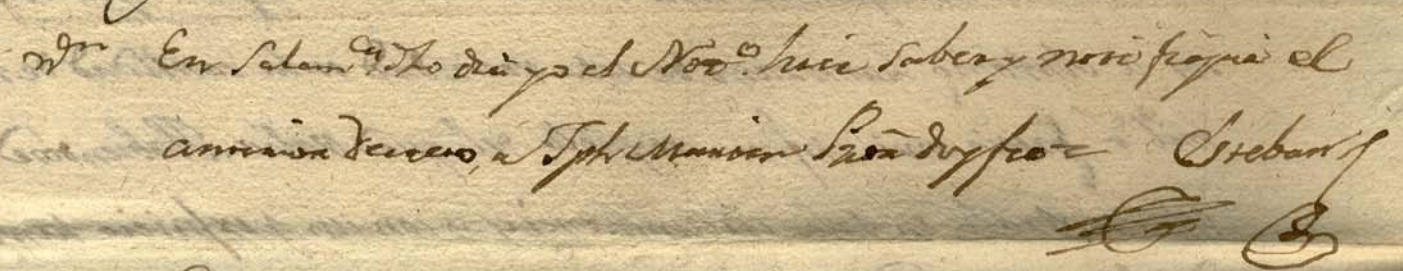 En Salam.ca dho dia yo el Not.o hice saber y notifique el
antezior Decreto, a Jph Martin en su persona doy fee= Esteban